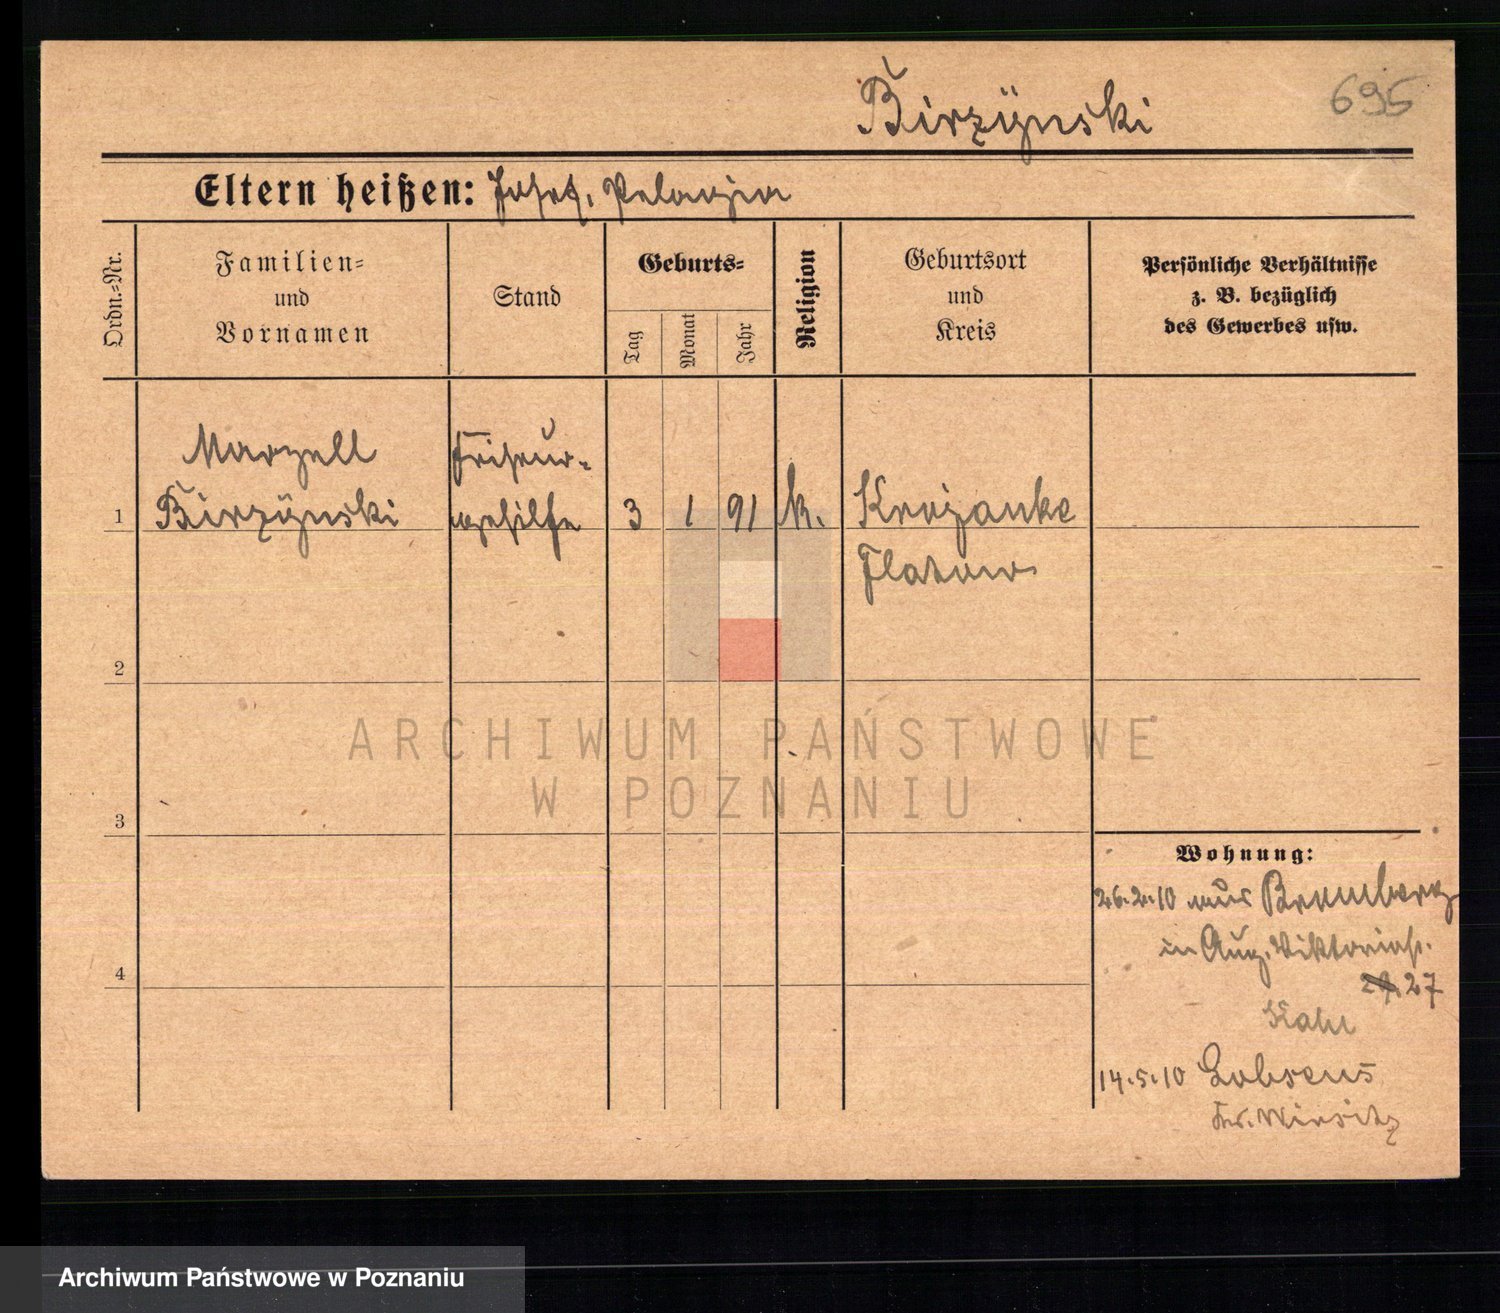 Birzÿnski
695
Eltern heißen: Josef, Pelagia
Ordn.=Nr.
Familien=
und
Vornamen
Stand
Geburts=
Tag
Monat
Jahr
Religion
Geburtsort
und
Kreis
Persönliche Verhältnisse
z. B. bezüglich
des Gewerbes usw.
Marzell
Friseur-
1
Birzÿnski
gehilfe
3
1
91
k.
Krojanke
Flatow
2
ARCHIWUM PAŃSTWOWE
W POZNANIU
3
Wohnung:
26.2.10 aus Bromberg
in Aug. Viktoriast.
27
4
14.5.10 Lobsens
Kr. Wirsitz
Archiwum Państwowe w Poznaniu